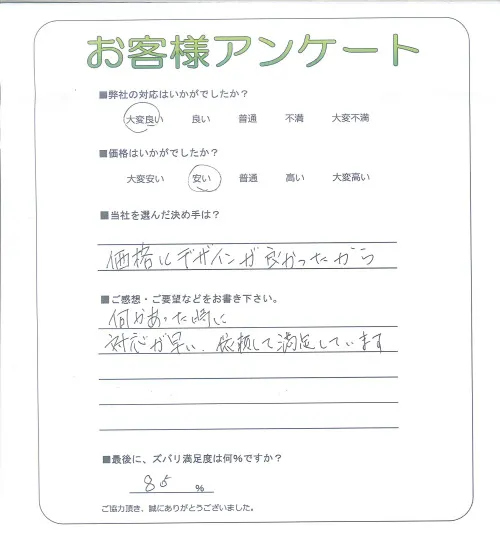 お客様アンケート
■弊社の対応はいかがでしたか？
大変良い 良い 普通 不満 大変不満
■価格はいかがでしたか？
大変安い 安い 普通 高い 大変高い
■当社を選んだ決め手は？
価格とデザインが良かったから
■ご感想・ご要望などをお書き下さい。
何かあった時に
対応が早い、依頼して満足しています
■最後に、ズバリ満足度は何％ですか？
85 ％
ご協力頂き、誠にありがとうございました。